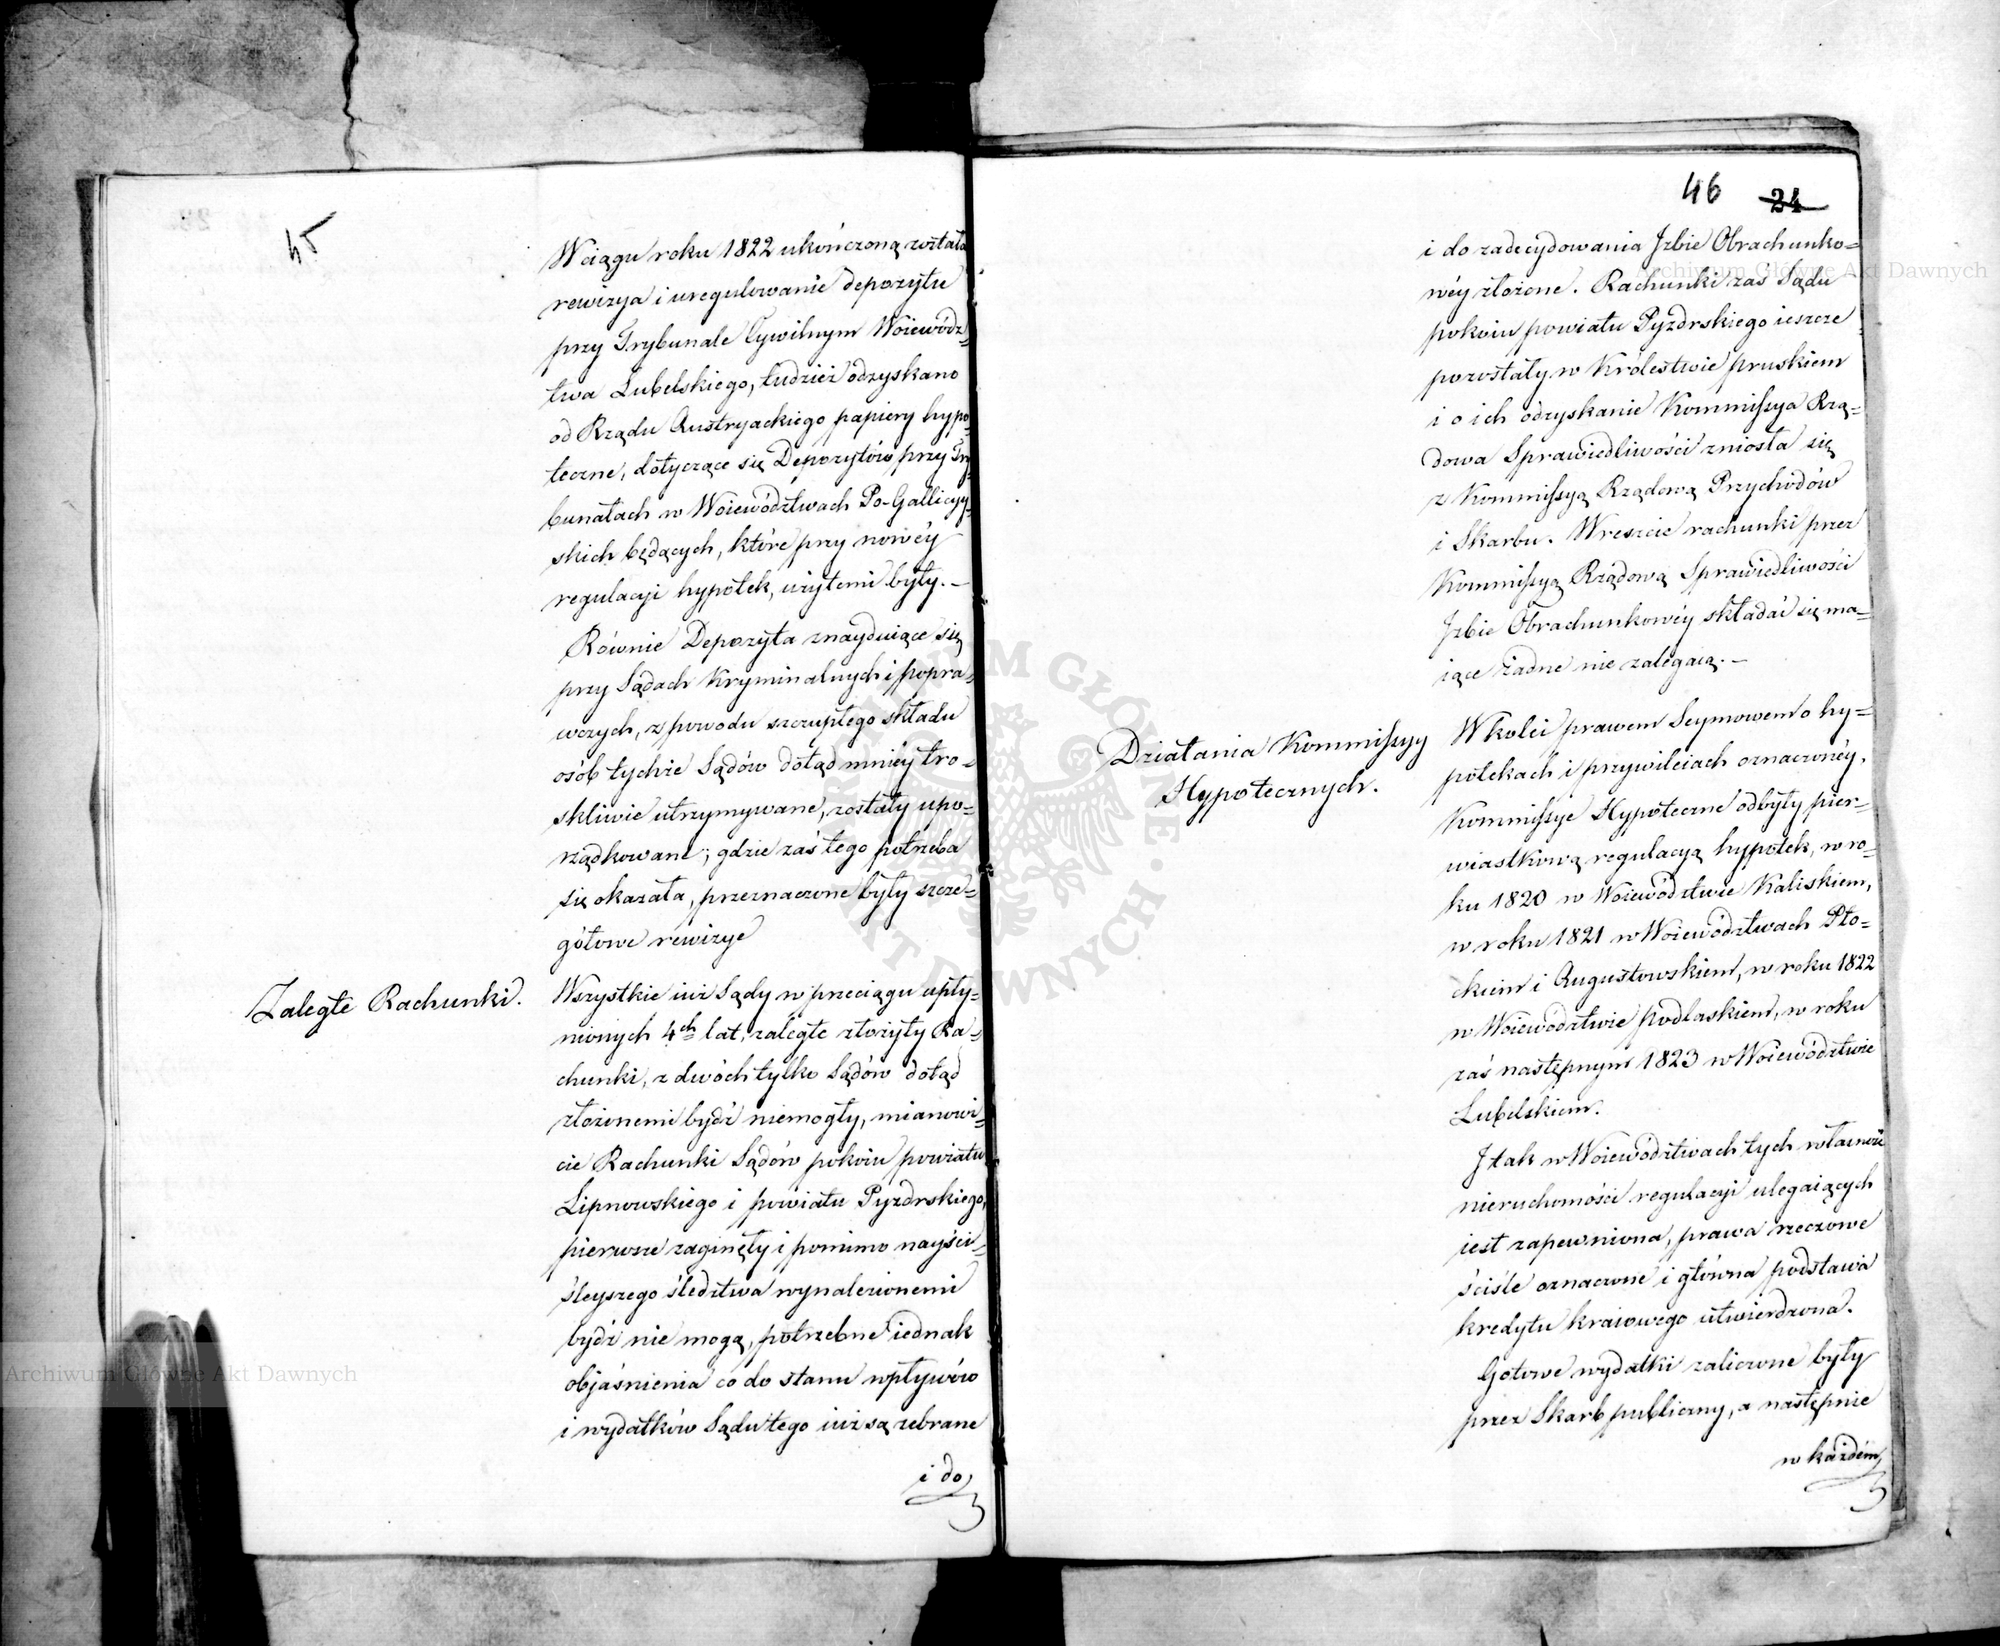 45
W ciągu roku 1822 ukończoną została
rewizya i uregulowanie depozytu
przy Trybunale Cywilnym Woiewódz=
twa Lubelskiego, tudzież odzyskano
od Rządu Austryackiego papiery hypo=
teczne, dotyczące się Depozytów przy Try=
bunałach w Woiewództwach Po-Gallicyy=
skich będących, które przy nowéy
regulacyi hypotek, użytemi były. —
Równie Depozyta znayduiące się
przy Sądach Kryminalnych i popra=
wczych, z powodu szczupłego składu
osób tychże Sądów dotąd mniéy tro=
skliwie utrzymywane, zostały upo=
rządkowane; gdzie zaś tego potrzeba
się okazała, przeznaczone były szcze=
gółowe rewizye
Zaległe Rachunki.
Wszystkie iuż Sądy w przeciągu upły=
nionych 4ch lat, zaległe złożyły Ra=
chunki, z dwóch tylko Sądów dotąd
złożonemi bydź niemogły, mianowi=
cie Rachunki Sądów pokoiu powiatu
Lipnowskiego i powiatu Pyzdrskiego,
pierwsze zaginęły i pomimo nayści=
śleyszego śledztwa wynalezionemi
bydź nie mogą, potrzebne iednak
objaśnienia co do stanu wpływów
i wydatków Sądu tego iuż są zebrane
i do
46 24
i do zadecydowania Izbie Obrachunko=
wéy złożone. Rachunki zaś Sądu
pokoiu powiatu Pyzdrskiego ieszcze
pozostały w Królestwie pruskiem
i o ich odzyskanie Kommissya Rzą=
dowa Sprawiedliwości zniosła się
z Kommissyą Rządową Przychodów
i Skarbu. Wreszcie rachunki przez
Kommissyą Rządową Sprawiedliwości
Izbie Obrachunkowéy składać się ma=
iące żadne nie zalegaią. —
Działania Kommissyy
Hypotecznych.
W kolei prawem Seymowem o hy=
potekach i przywileiach oznaczonéy,
Kommissye Hypoteczne odbyły pier=
wiastkową regulacyą hypotek, w ro=
ku 1820 w Woiewództwie Kaliskiem,
w roku 1821 w Woiewództwach Pło=
ckiem i Augustowskiem, w roku 1822
w Woiewództwie podlaskiem, w roku
zaś następnym 1823 w Woiewództwie
Lubelskiem.
I tak w Woiewództwach tych własność
nieruchomości regulacyi ulegaiących
iest zapewniona, prawa rzeczowe
ściśle oznaczone i główna podstawa
kredytu kraiowego utwierdzona.
Gotowe wydatki zaliczone były
przez Skarb publiczny, a następnie
w każdém
Archiwum Główne Akt Dawnych
Archiwum Główne Akt Dawnych
ARCHIWUM GŁÓWNE AKT DAWNYCH